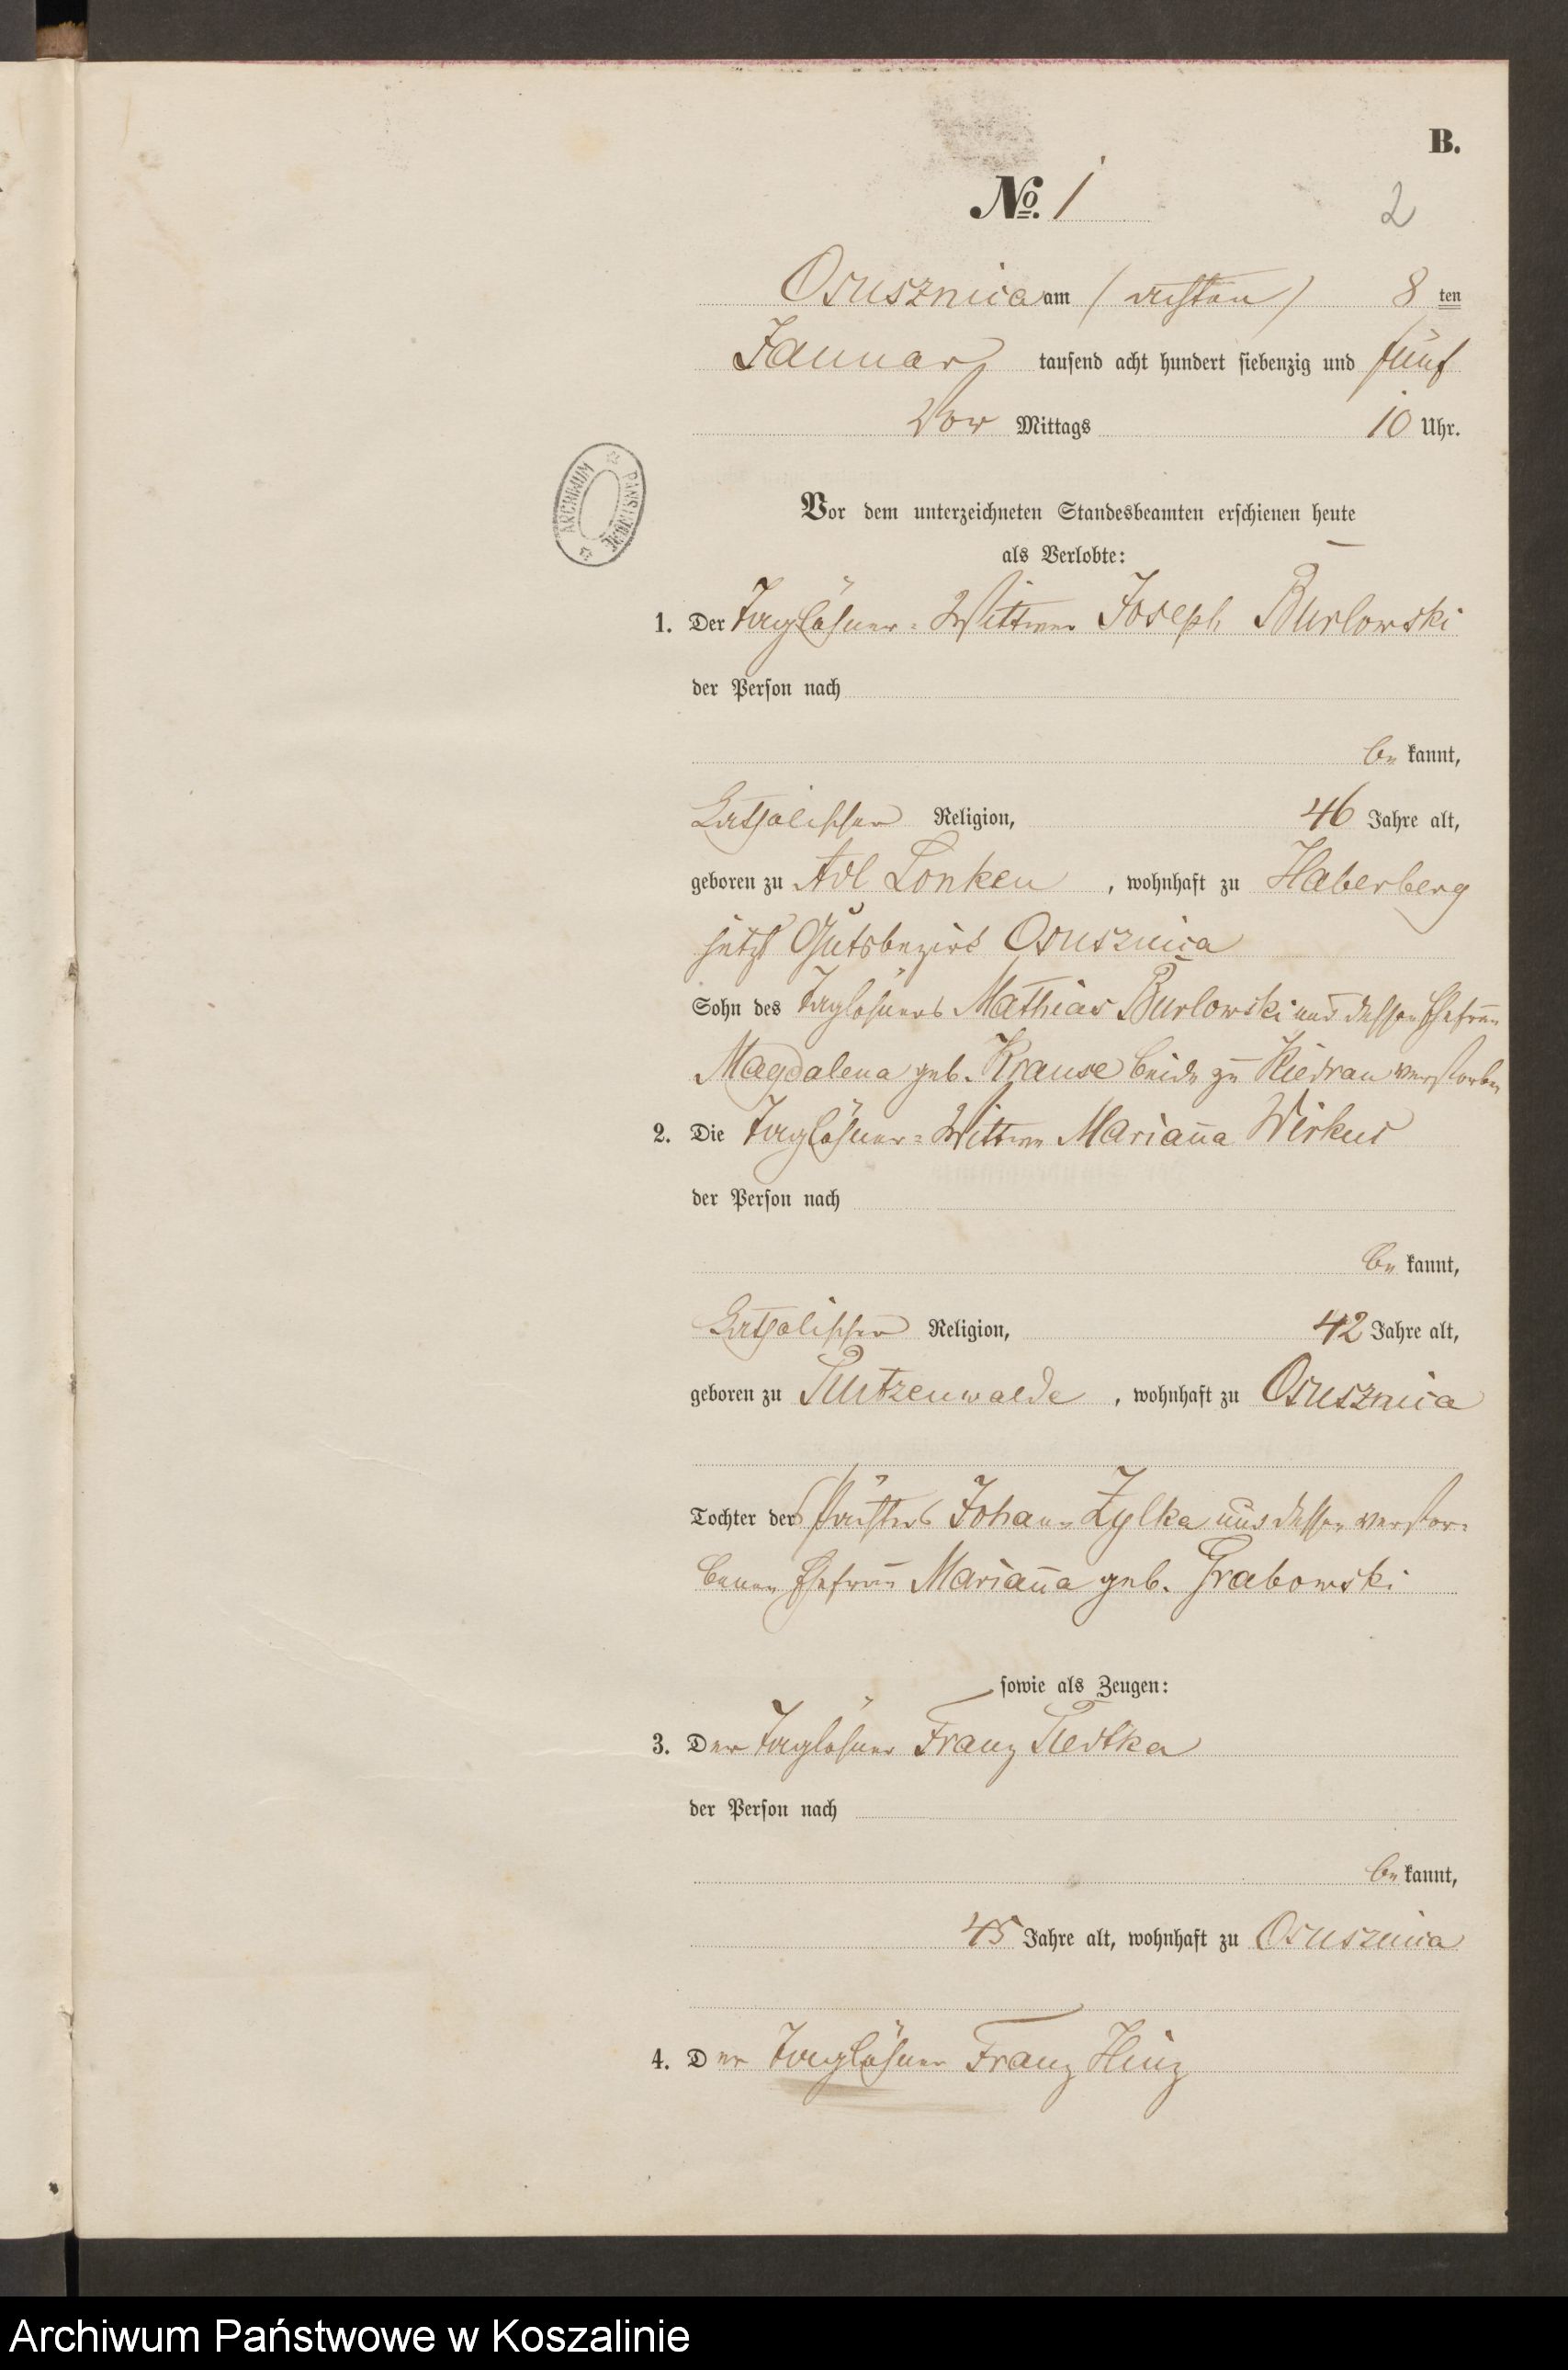 B.
No. 1
2
Osusznica am (achten) 8 ten
Januar tausend acht hundert siebenzig und fünf
Vor Mittags 10 Uhr.
ARCHIWUM PAŃSTWOWE
Vor dem unterzeichneten Standesbeamten erschienen heute
als Verlobte:
1. Der Taglöhner-Wittwer Joseph Burlowski
der Person nach
be kannt,
Katholischer Religion, 46 Jahre alt,
geboren zu Adl Lonken, wohnhaft zu Haberberg
jetzt Gutsbezirk Osusznica
Sohn des Taglöhners Mathias Burlowski und dessen Ehefrau
Magdalena geb. Krause beide zu Kiedrau verstorben
2. Die Taglöhner-Wittwe Marianna Wirkus
der Person nach
be kannt,
Katholischer Religion, 42 Jahre alt,
geboren zu Lutzenwalde, wohnhaft zu Osusznica
Tochter des Johann Zylka und dessen verstor-
benen Ehefrau Marianna geb. Grabowski
sowie als Zeugen:
3. Der Taglöhner Franz
der Person nach
be kannt,
45 Jahre alt, wohnhaft zu Osusznica
4. Der Taglöhner Franz Hinz
Archiwum Państwowe w Koszalinie